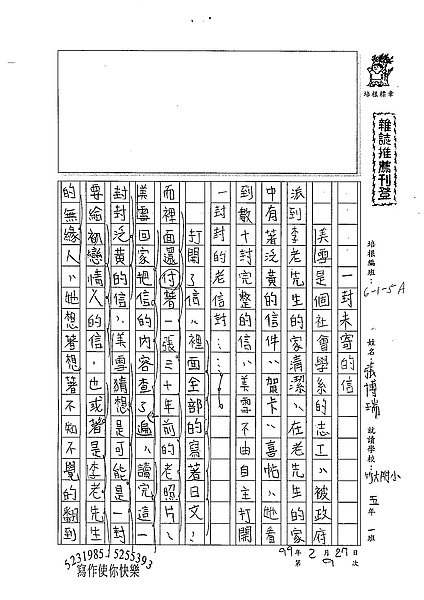 培根標章
雜誌推薦刊登
培根編班：6-1-5A
姓名：張博瑞
就讀學校：竹大附小 五年 一班
99年2月27日
第 9 次
一封未寄的信
美雪是個社會學系的志工，被政府
派到李老先生的家清潔，在老先生的家
中有著泛黃的信件、賀卡、喜帖，她看
到數十封完整的信，美雪不由自主打開
一封封的老信封……
打開了信，裡面全部的寫著日文！
而裡面還付著一張三十年前的老照片，
美雪回家把信的內容查了遍，讀完這一
封封泛黃的信，美雪猜想是可能是一封
要給初戀情人的信，也或著是李老先生
的無緣人，她想著想著不知不覺的翻到
5231985.5255393
寫作使你快樂